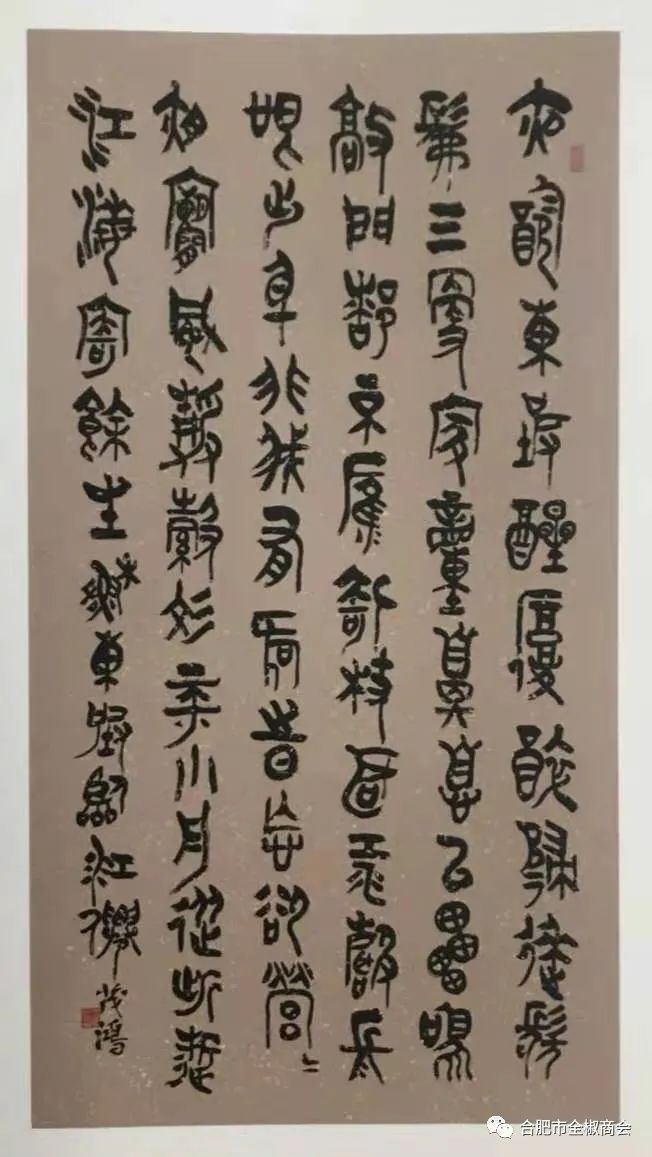 夜飲東坡醒復醉歸來髣
髴三更家童鼻息已雷鳴
敲門都不應倚杖聽江聲長
恨此身非我有何時忘卻營〻
夜闌風靜縠紋平小舟從此逝
江海寄餘生蘇東坡臨江僊茂鴻
合肥市全椒商会